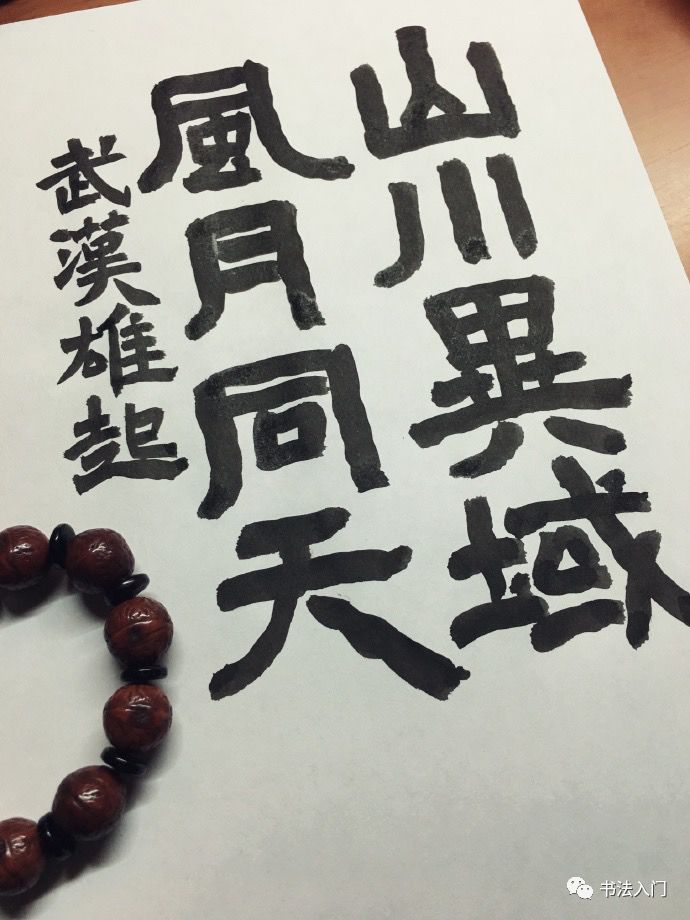 山川異域
風月同天
武漢雄起
书法入门